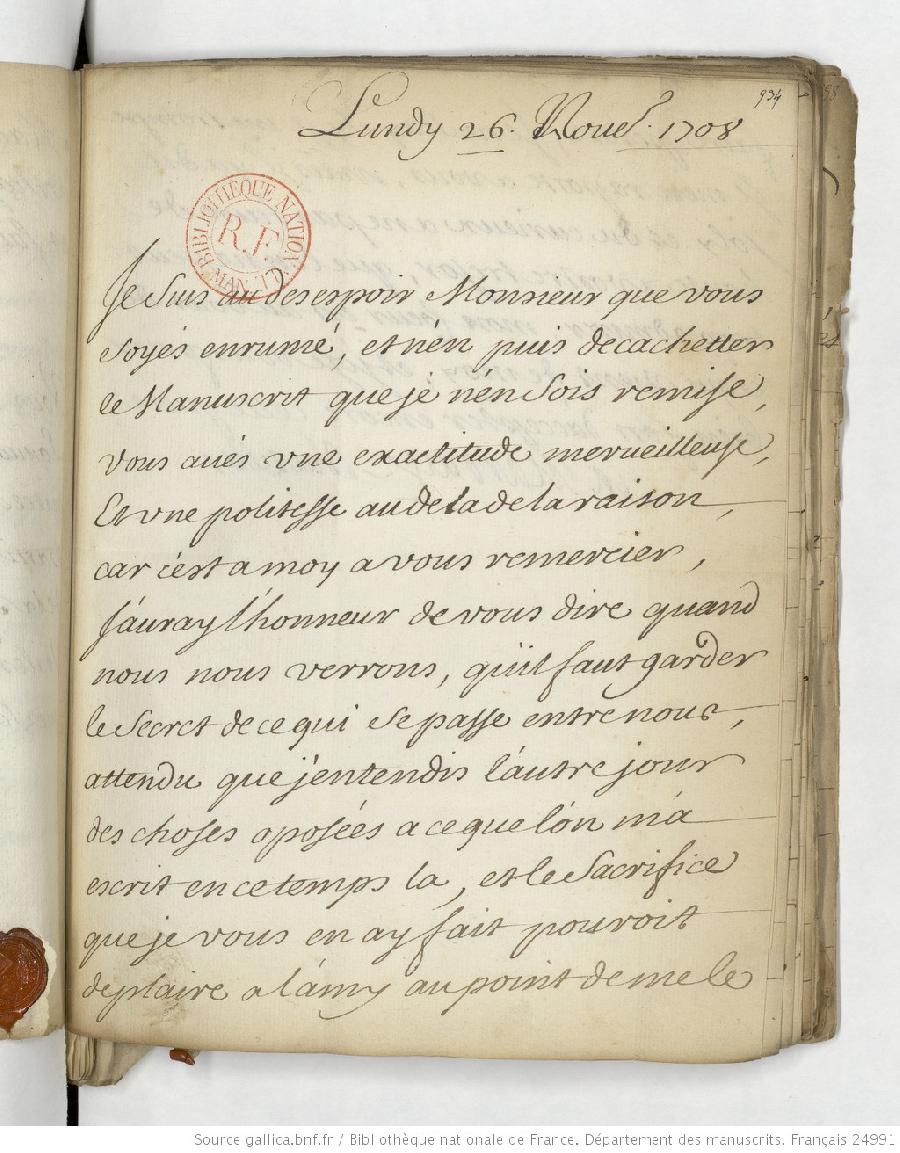 934
Lundy 26. Nouel. 1708
BIBLIOTHEQUE NATIONALE MAN.
R.F.
Je Suis au desespoir Monsieur que vous
soyés enrumé, et n'én puis decachetter
le Manuscrit que je n'én Sois remise,
vous aués vne exactitude merueilleuse,
Et vne politesse au dela de la raison,
car c'ést a moy a vous remercier,
J'áuray l'honneur de vous dire quand
nous nous verrons, qu'il faut garder
le Secret de ce qui Se passe entre nous,
attendu que j'entendis l'áutre jour
des choses oposées a ce que l'ón m'á
escrit en ce temps la, et le Sacrifice
que je vous en ay fait pouroit
deplaire a l'ámy au point de me le
Source gallica.bnf.fr / Bibliothèque nationale de France. Département des manuscrits. Français 24991